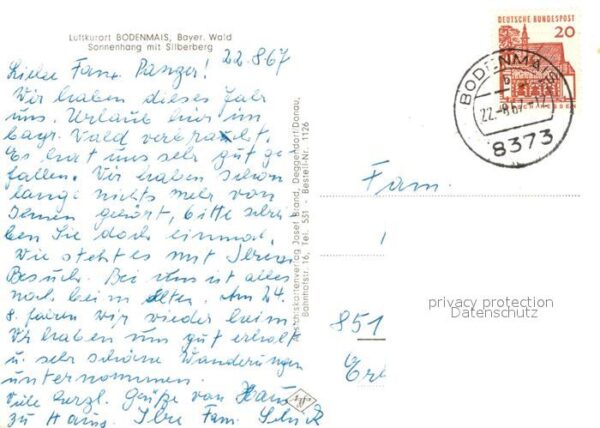 Luftkurort BODENMAIS, Bayer. Wald
Sonnenhang mit Silberberg
22.8.67
Liebe Fam. Panzer!
Wir haben dieses Jahr
uns. Urlaub hier im
bayr. Wald verbraucht.
Es hat uns sehr gut ge-
fallen. Wir haben schon
lange nichts mehr von
Ihnen gehört, bitte schrei-
ben Sie doch einmal,
wie steht es mit Ihrem
Besuch. Bei uns ist alles
noch beim Alten. Am 24.
8. fahren wir wieder heim.
Wir haben uns gut erholt
u. sehr schöne Wanderungen
unternommen.
Viele herzl. Grüße von Haus
zu Haus. Ihre Fam.
Ansichtskartenverlag Josef Bland, Deggendorf/Donau,
Bahnhofstr. 16, Tel. 551 · Bestell-Nr. 1126
DEUTSCHE BUNDESPOST
20
BODENMAIS
b
22.-8.67.-17
8373
Fam.
851
privacy protection
Datenschutz